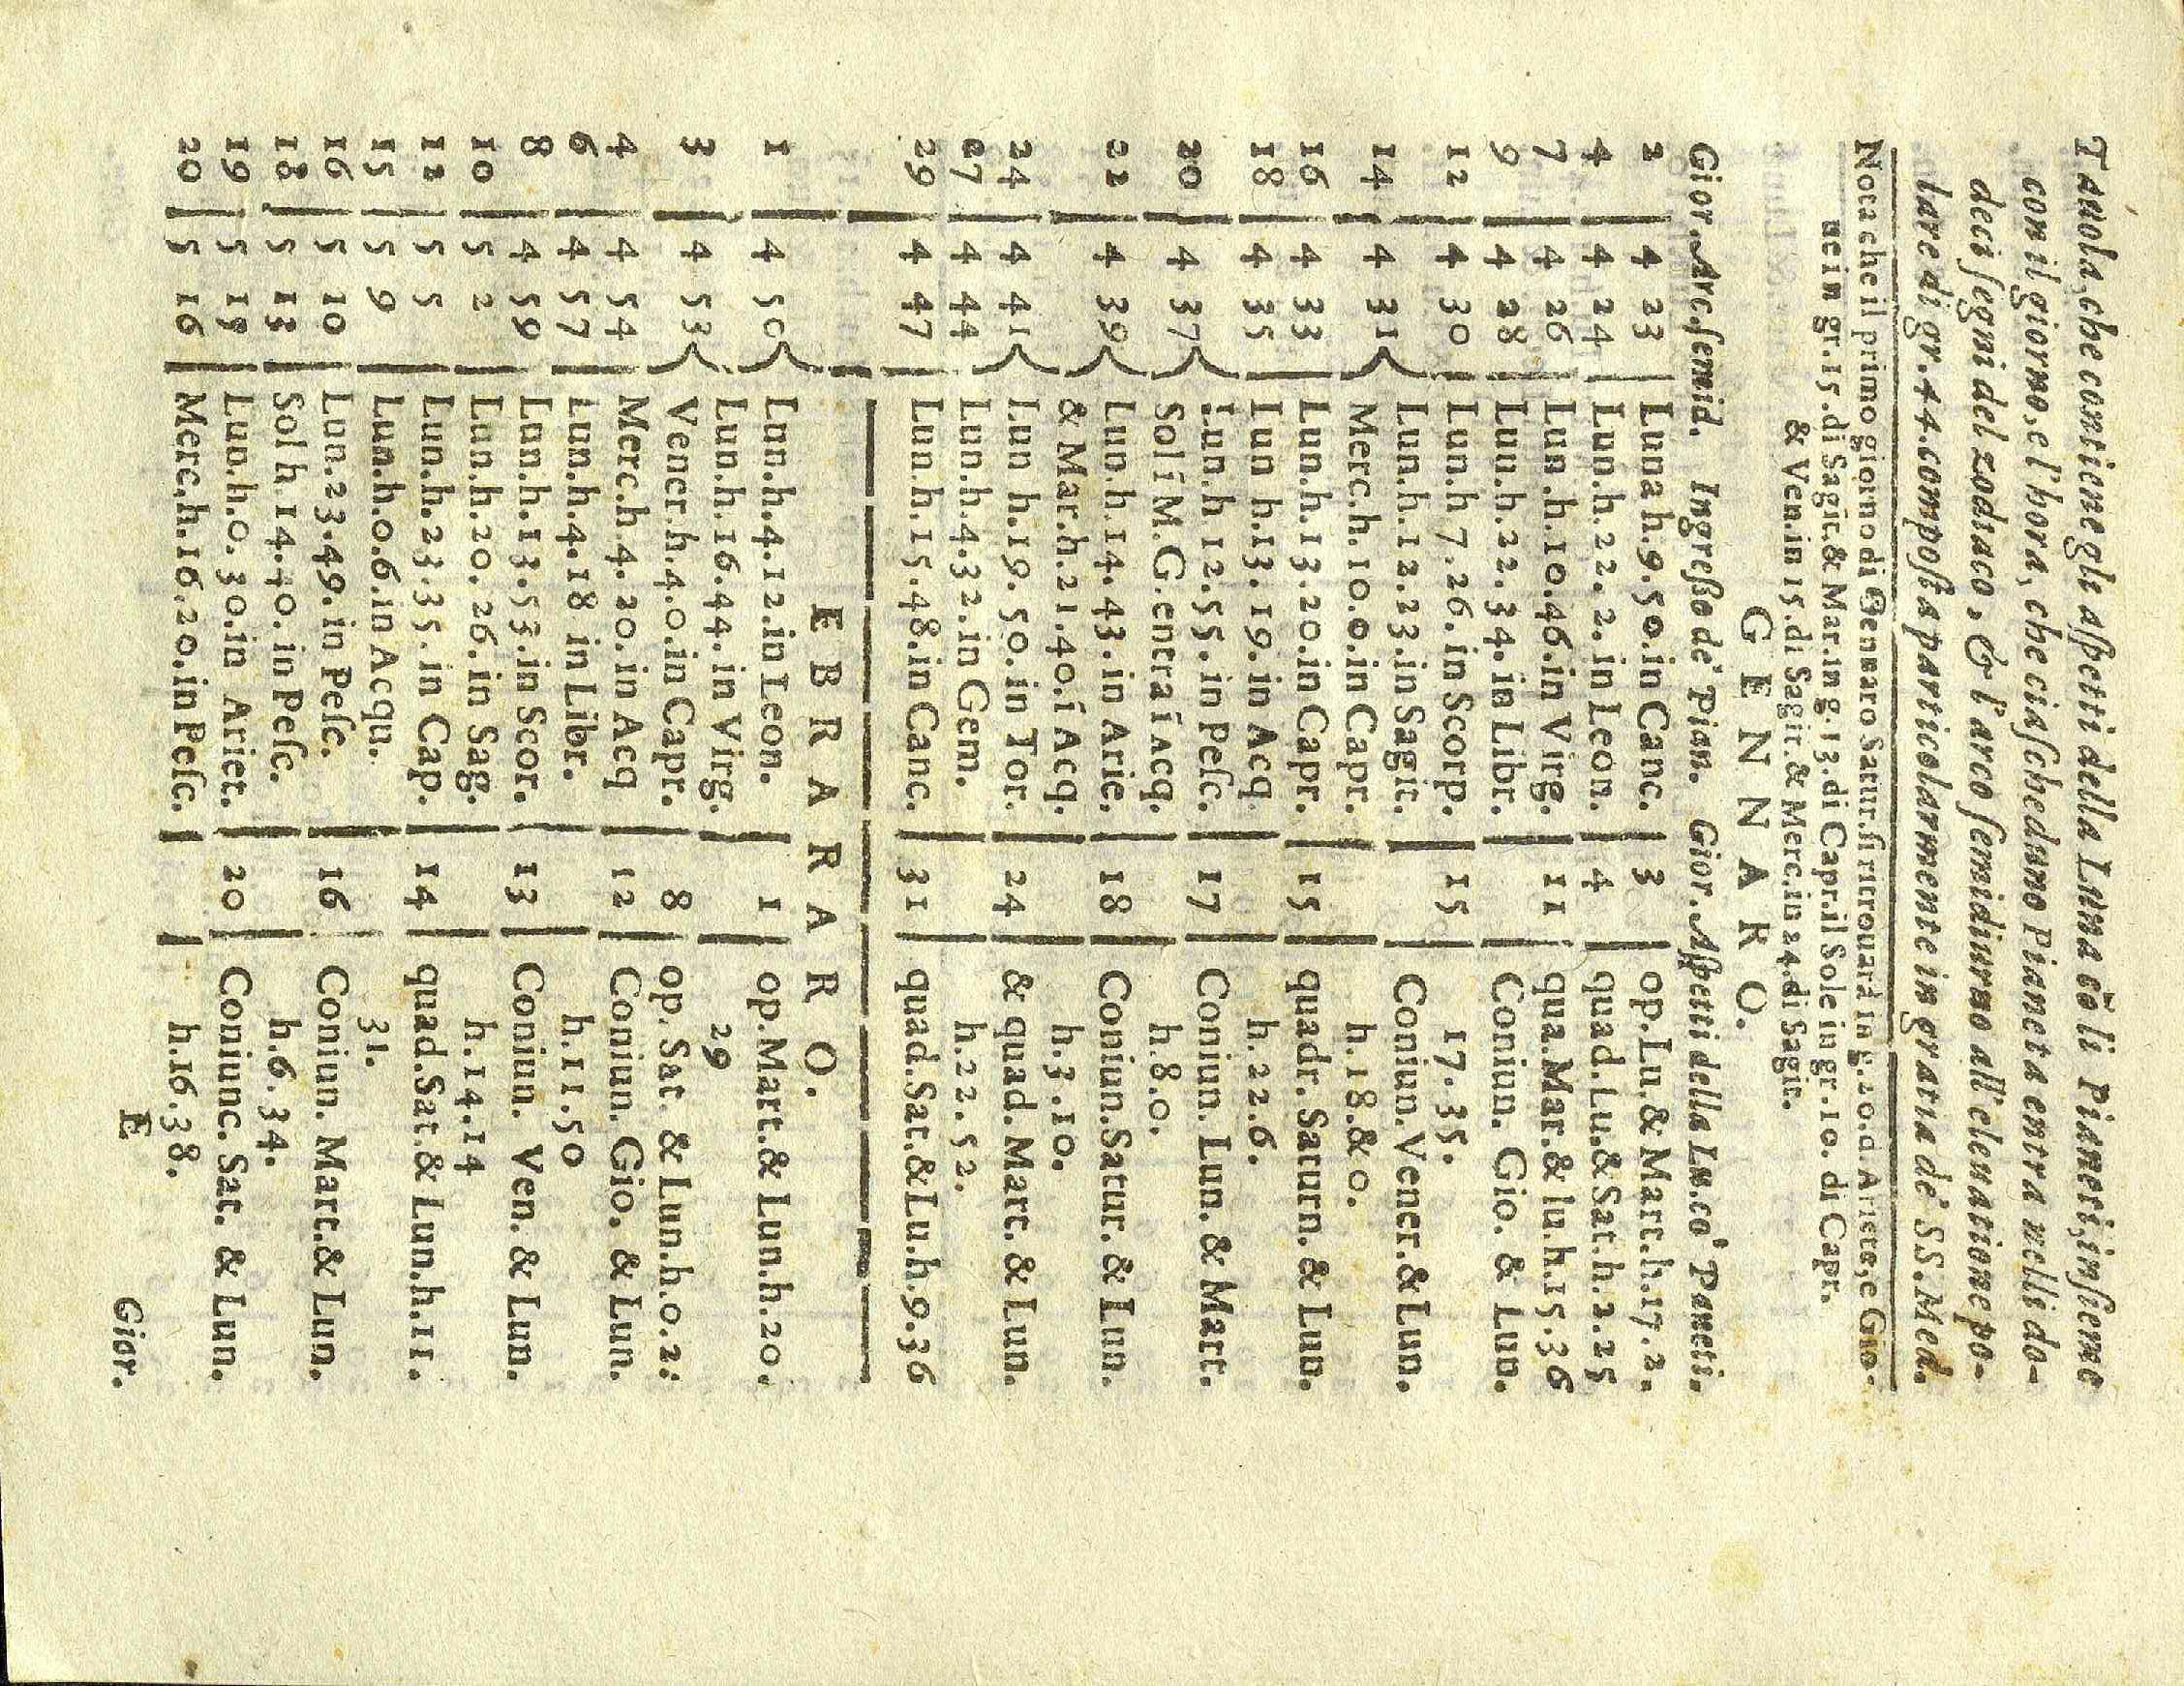 Tauola, che contiene gli aſpetti della Luna cō li Pianeti, inſieme
con il giorno, e l'hora, che ciaſcheduno Pianeta entra nelli do-
deci ſegni del zodiaco, & l'arco ſemidiurno all' eleuatione po-
lare di gr. 44. compoſta particolarmente in gratia de' SS. Med.
Nota che il primo giorno di Gennaro Satur. ſi ritrouarà in g. 20. d'Ariete, e Gio-
ue in gr. 15. di Sagit. & Mar. in g. 13. di Capr. il Sole in gr. 10. di Capr.
& Ven. in 15. di Sagit. & Merc. in 24. di Sagit.
G E N N A R O.
Gior. Arc. ſemid. Ingreſſo de' Pian. Gior. Aſpetti della Lu. co' Paneti.
2 | 4 23 | Luna h. 9. 50. in Canc. | 3 | op. Lu. & Mart. h. 17. 2.
4 | 4 24 | Lun. h. 22. 2. in Leon. | 4 | quad. Lu. & Sat. h. 2. 25
7 | 4 26 | Lun. h. 10. 46. in Virg. | 11 | qua. Mar. & lu. h. 15. 36
9 | 4 28 | Lun. h. 22. 34. in Libr. | Coniun. Gio. & Lun.
12 | 4 30 | Lun. h 7. 26. in Scorp. | 15 | 17. 35.
Lun. h. 12. 23. in Sagit. | Coniun. Vener. & Lun.
14 | 4 31 { Merc. h. 10. 0. in Capr. | h. 18. & 0.
16 | 4 33 | Lun. h. 13. 20. in Capr. | 15 | quadr. Saturn. & Lun.
18 | 4 35 | Lun h. 13. 19. in Acq. | h. 22. 6.
Lun. h 12. 55. in Peſc. | 17 | Coniun. Lun. & Mart.
20 | 4 37 { Sol ī M. G. entra ī Acq. | h. 8. 0.
22 | 4 39 { Lun. h. 14. 43. in Arie. | 18 | Coniun. Satur. & Lun.
& Mar. h. 21. 40. ī Acq. | h. 3. 10.
24 | 4 41 { Lun h. 19. 50. in Tor. | 24 | & quad. Mart. & Lun.
27 | 4 44 | Lun. h. 4. 32. in Gem. | h. 22. 52.
29 | 4 47 | Lun. h. 15. 48. in Canc. | 31 | quad. Sat. & Lu. h. 9. 36
E B R A R A R O.
1 | 4 50 { Lun. h. 4. 12. in Leon. | 1 | op. Mart. & Lun. h. 20.
Lun. h. 16. 44. in Virg. | 29
3 | 4 53 { Vener. h. 4. 0. in Capr. | 8 | op. Sat. & Lun. h. 0. 2:
4 | 4 54 | Merc. h. 4. 20. in Acq | 12 | Coniun. Gio. & Lun.
6 | 4 57 | Lun. h. 4. 18 in Libr. | h. 11. 50
8 | 4 59 | Lun. h. 13. 53. in Scor. | 13 | Coniun. Ven. & Lun.
10 | 5 2 | Lun. h. 20. 26. in Sag. | h. 14. 14
12 | 5 5 | Lun. h. 23. 35. in Cap. | 14 | quad. Sat. & Lun. h. 11.
15 | 5 9 | Lun. h. 0. 6. in Acqu. | 31.
16 | 5 10 | Lun. 23. 49. in Peſc. | 16 | Coniun. Mart. & Lun.
18 | 5 13 | Sol h. 14. 40. in Peſc. | h. 6. 34.
19 | 5 15 | Lun. h. 0. 30. in Ariet. | 20 | Coniunc. Sat. & Lun.
20 | 5 16 | Merc. h. 16. 20. in Peſc. | h. 16. 38.
E Gior.